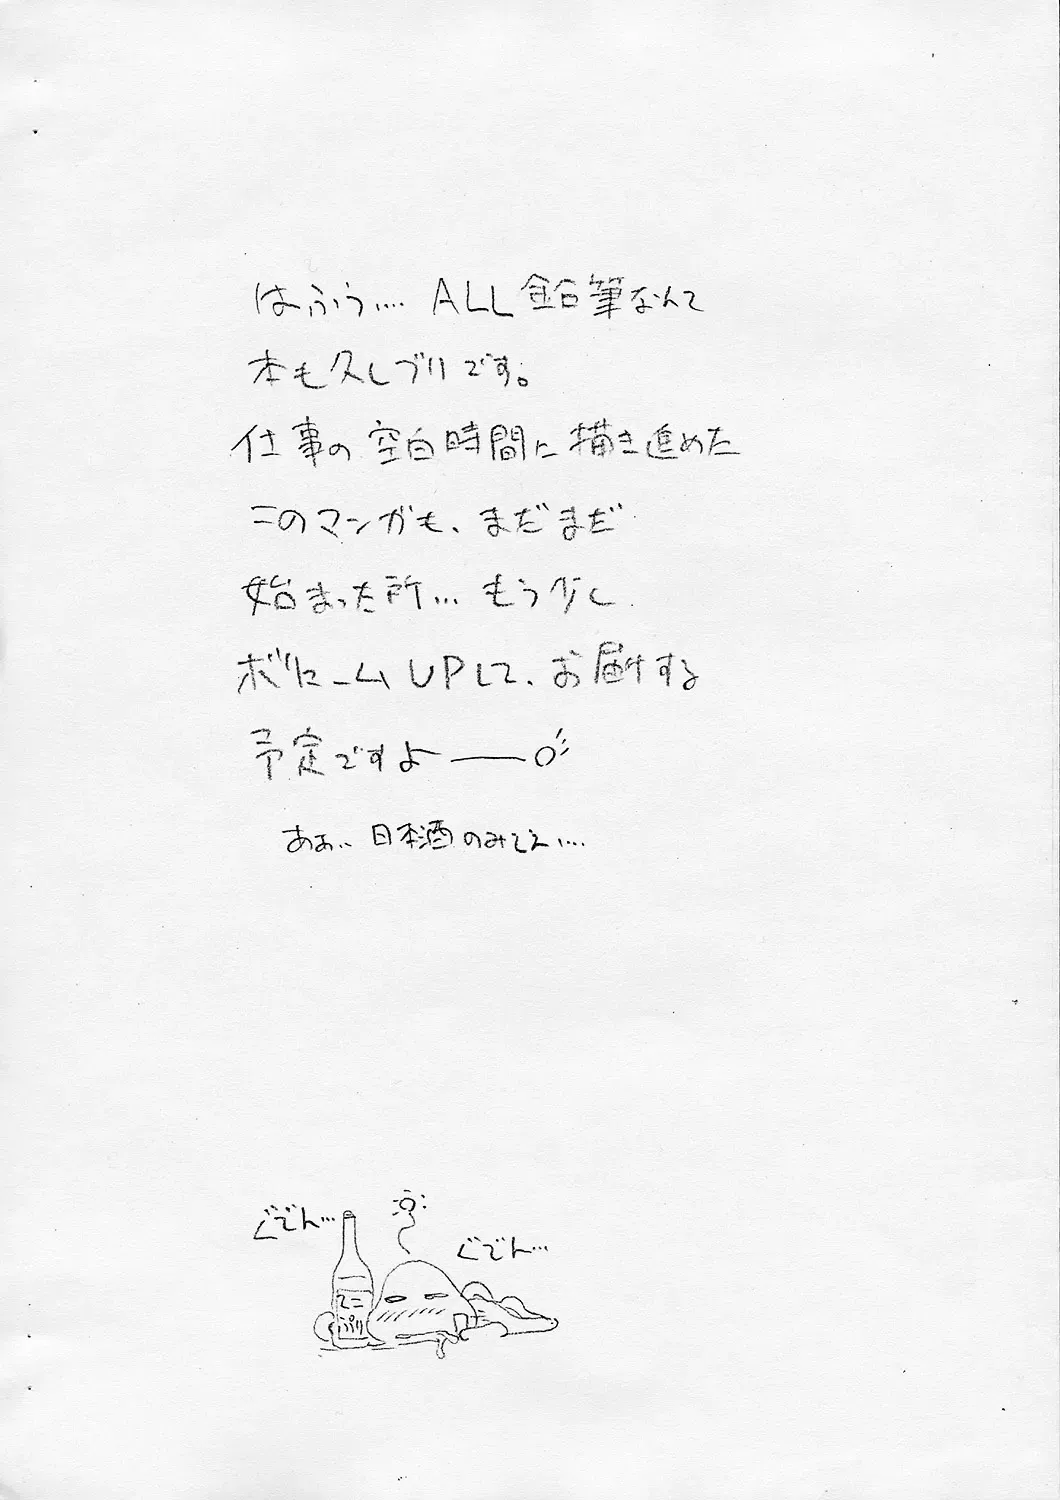 はふぅ…. ALL鉛筆なんて
本も久しブリです。
仕事の空白時間に描き進めた
このマンガも、まだまだ
始まった所… もう少し
ボリュームUPして、お届けする
予定ですよー――o
あぁ、、日本酒のみてえ….
ぐでん…
ぐでん…